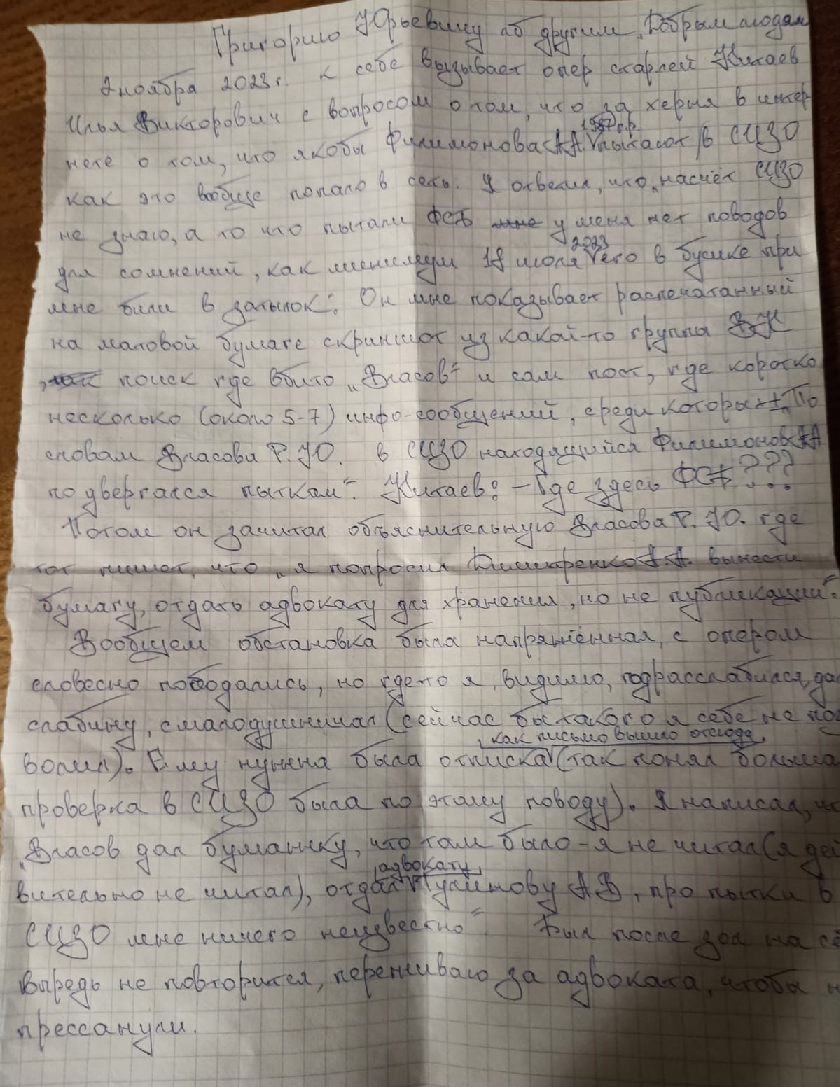 Григорию Юрьевичу и другим добрым людям
2 ноября 2023г. к себе вызывает опер старлей Китаев
Илья Викторович с вопросом о том, что за херня в интер-
нете о том, что якобы Филимонова А.А. 1987г.р. пытают в СИЗО
как это вообще попало в сеть. Я ответил, что „насчёт СИЗО
не знаю, а то что пытали ФСБ у меня нет поводов
для сомнений, как минимум 18 июля 2023 его в бусике при
мне били в затылок". Он мне показывает распечатанный
на маловой бумаге скриншот из какой-то группы ВК
, поиск где вбито „Власов" и сам пост, где коротко
несколько (около 5-7) инфо-сообщений, среди которых „По
словам Власова Р.Ю. в СИЗО находящийся Филимонов АА
подвергался пыткам". Китаев: - Где здесь ФСБ???
Потом он зачитал объяснительную Власова Р.Ю. где
тот пишет, что „я попросил Дмитренко А.А. вынести
бумагу, отдать адвокату для хранения, но не публикации".
Вообщем обстановка была напряжённая, с опером
словесно пободались, но где-то я, видимо, подрасслабился, дал
слабину, смалодушничал (сейчас бы такого я себе не поз
волил). Ему нужна была отписка, как письмо вышло отсюда, (так понял большая
проверка в СИЗО была по этому поводу). Я написал, что
„Власов дал бумажку, что там было - я не читал (я дей
вительно не читал), отдал адвокату АВ, про пытки в
СИЗО мне ничего неизвестно" Был после зол на се
Впредь не повторится, переживаю за адвоката, чтобы н
прессанули.